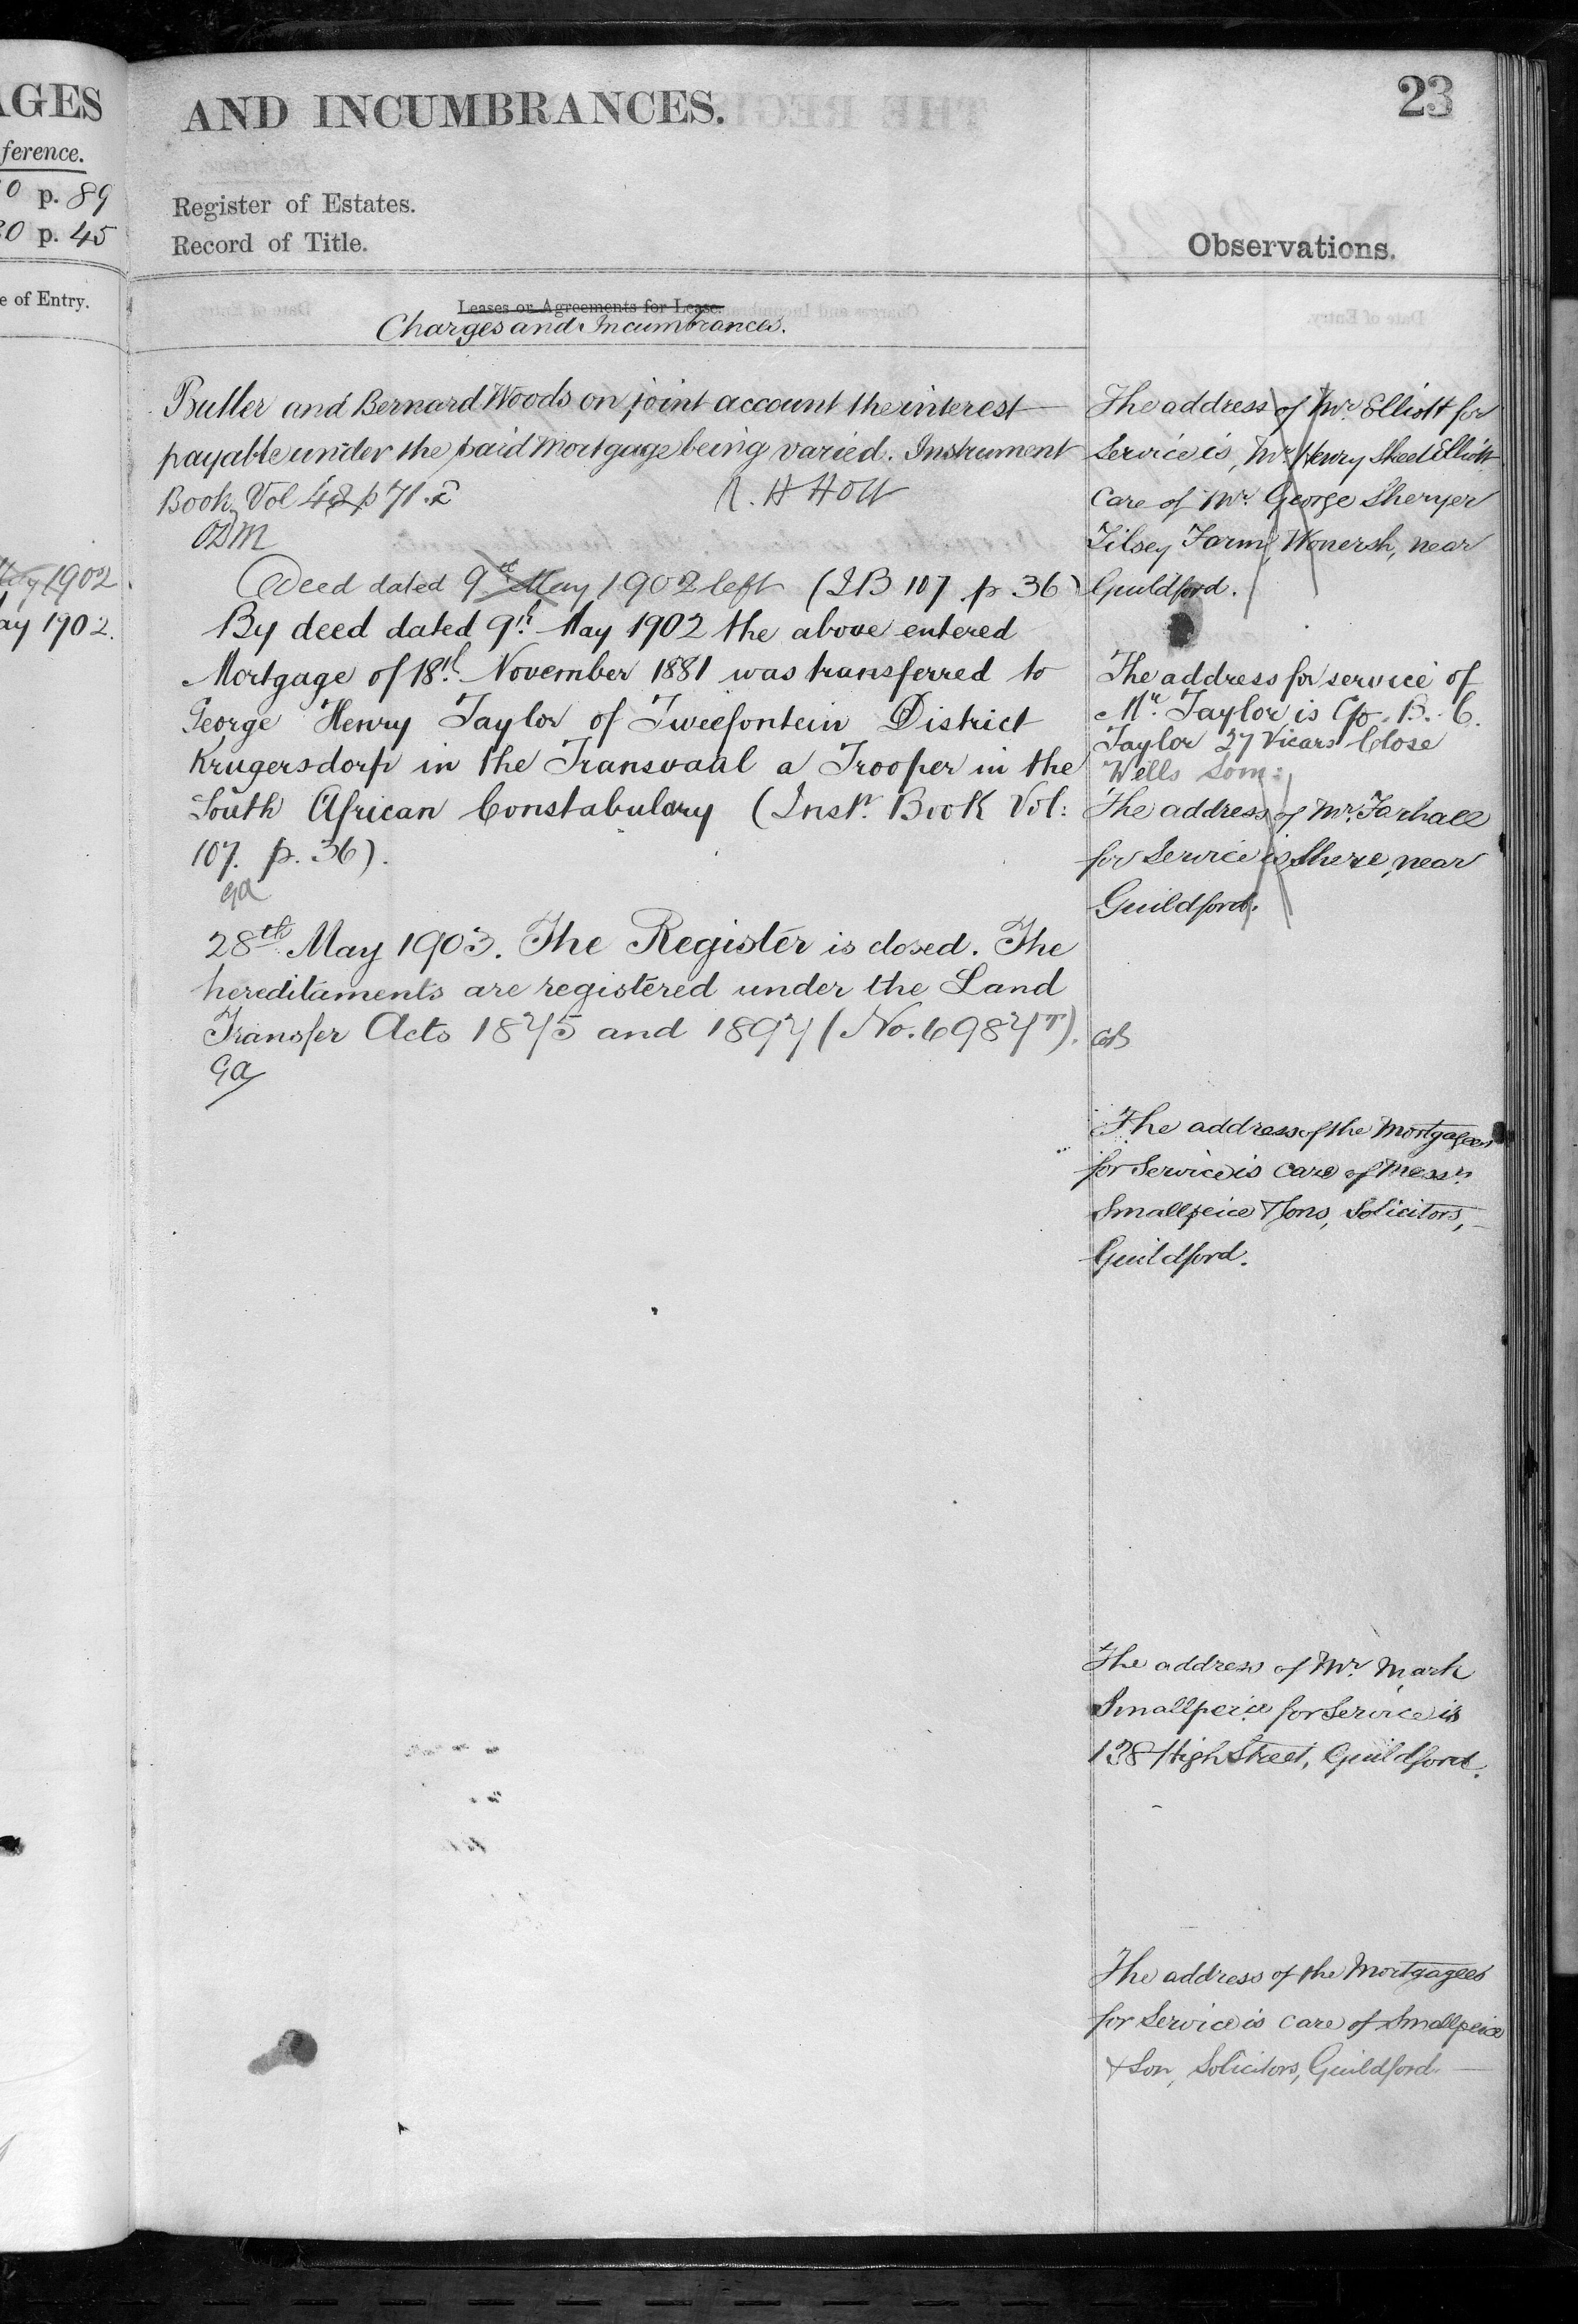 AGES
ference.
0 p. 89
30 p. 45
e of Entry.
1902
ay 1902.
AND INCUMBRANCES.
23
Register of Estates.
Record of Title.
Observations.
Leases or Agreements for Lease.
Charges and Incumbrances.
Butler and Bernard Woods on joint account the interest
payable under the said Mortgage being varied. Instrument
Book Vol 42 p 71.
Holt
Deed dated 9th May 1902 left (IB 107 p 36)
By deed dated 9th May 1902 the above entered
Mortgage of 18th November 1881 was transferred to
George Henry Taylor of Tweefontein District
Krugersdorp in the Transvaal a Trooper in the
South African Constabulary (Instr. Book Vol:
107. p. 36).
GA
28th May 1903. The Register is closed. The
hereditaments are registered under the Land
Transfer Acts 1875 and 1897 (No. 6984T).
GA
The address of Mr. Elliott for
Service is, Mr. Henry Skeet Elliott
care of Mr. George Sheryer
Tilsey Farm, Wonersh, near
Guildford.
The address for service of
Mr. Taylor is C/o. B. C.
Taylor 27 Vicars Close
Wells Som:
The address of Mr. Farhall
for Service is Shere, near
Guildford.
The address of the Mortgagees
for Service is care of Messrs.
Smallpeice & Sons, Solicitors,
Guildford.
The address of Mr. Mark
Smallpeice for Service is
138 High Street, Guildford.
The address of the Mortgagees
for Service is care of Smallpeice
& Son, Solicitors, Guildford